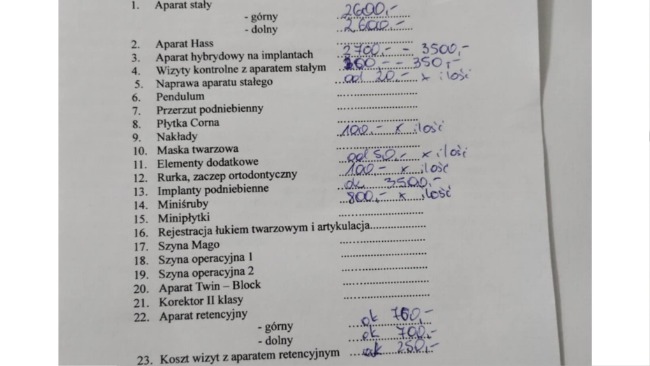 1. Aparat stały
- górny 2600,-
- dolny 2600,-
2. Aparat Hass
3. Aparat hybrydowy na implantach 2700,- - 3500,-
4. Wizyty kontrolne z aparatem stałym 300,- - 350,-
5. Naprawa aparatu stałego od 20,- x ilość
6. Pendulum
7. Przerzut podniebienny
8. Płytka Corna
9. Nakłady 100,- x ilość
10. Maska twarzowa
11. Elementy dodatkowe od 50,- x ilość
12. Rurka, zaczep ortodontyczny 100,- x ilość
13. Implanty podniebienne ok 3500,-
14. Miniśruby 800,- x ilość
15. Minipłytki
16. Rejestracja łukiem twarzowym i artykulacja
17. Szyna Mago
18. Szyna operacyjna 1
19. Szyna operacyjna 2
20. Aparat Twin – Block
21. Korektor II klasy
22. Aparat retencyjny
- górny ok 700,-
- dolny ok 700,-
23. Koszt wizyt z aparatem retencyjnym ok 250,-